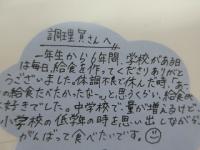 調理員さんへ
一年生から6年間、学校がある日
は毎日、給食を作ってくださりありがと
うございました。体調不良で休んだ時、「あー
の給食たべたかったな〜」と思うくらい、給食が
大好きでした。中学校で、量が増えるけど、
小学校の低学年の時を思い出しながら
がんばって食べたいです。